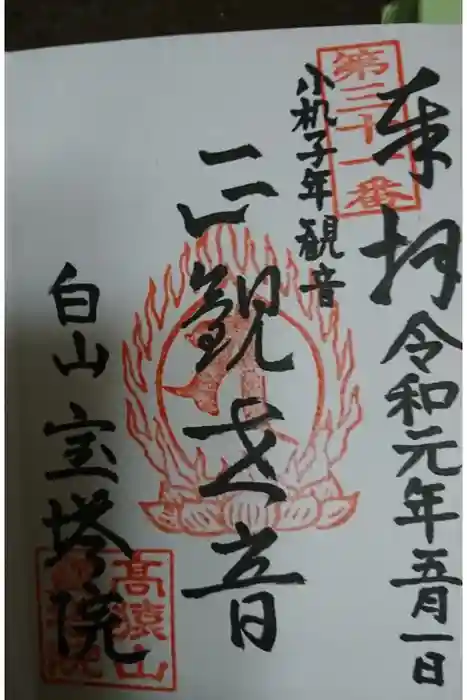 奉拝 令和元年五月一日
第三十一番
小机子年観音
正観世音
白山 宝塔院
高猿山